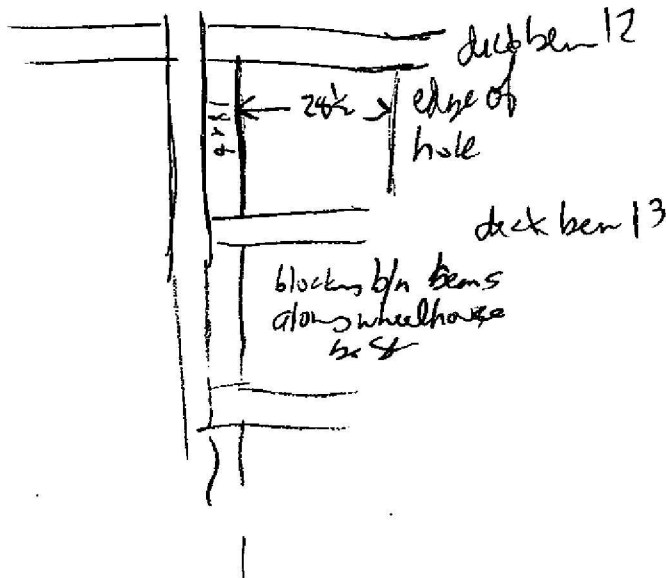 deck beam 12
28½
edge of
hole
deck beam 13
blocking b/n beams
along wheelhouse